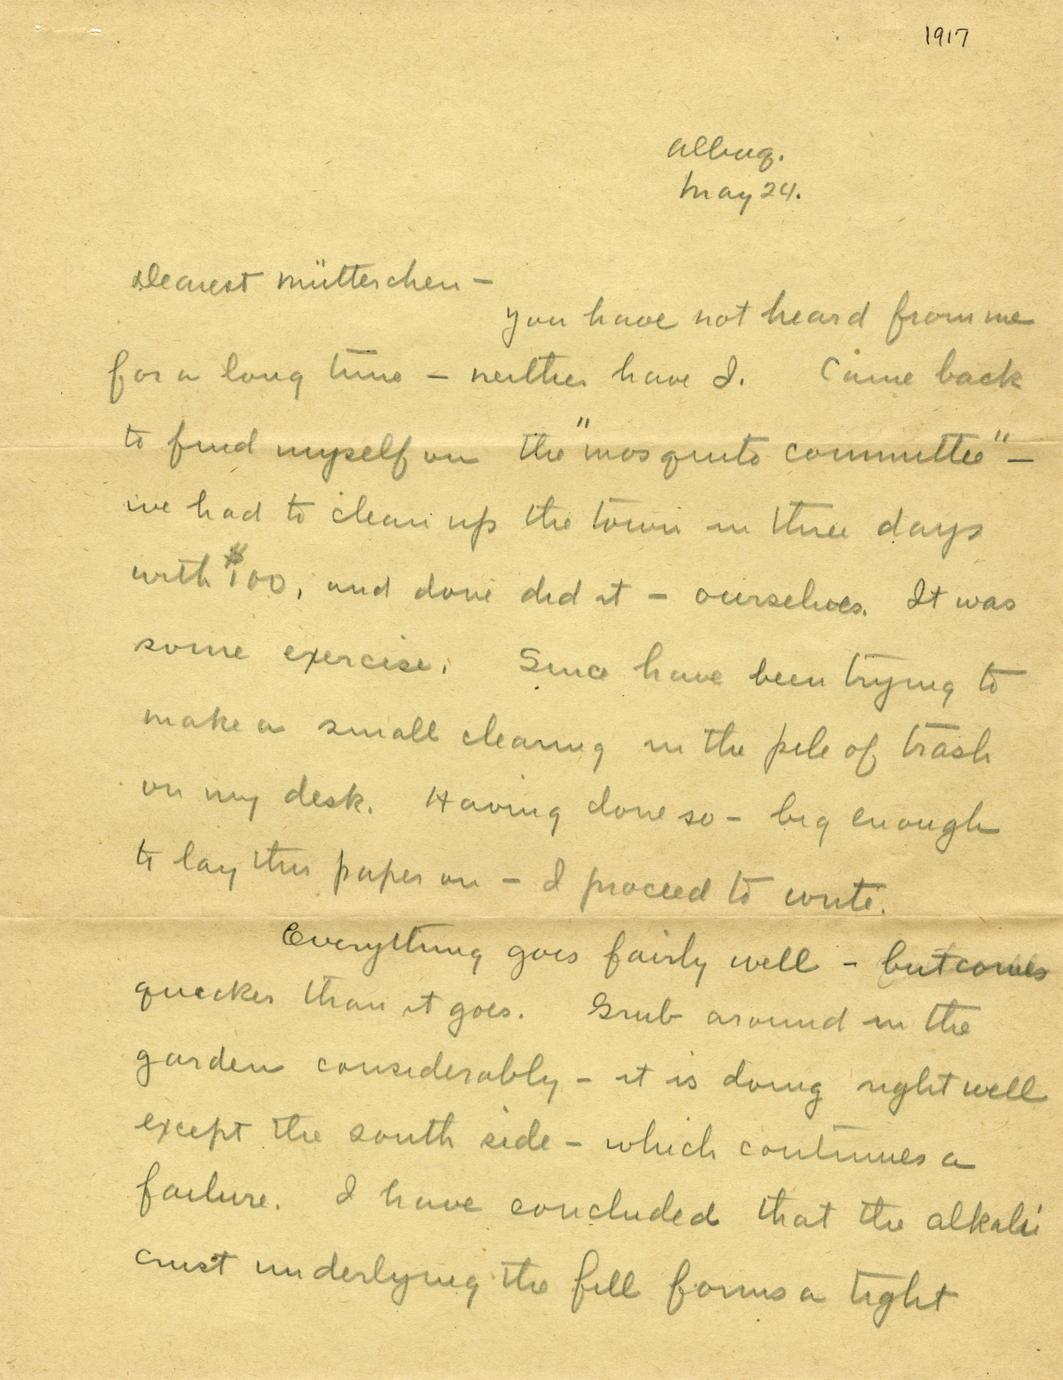 1917
Albuq.
May 24.
Dearest Mütterchen —
You have not heard from me
for a long time — neither have I. Came back
to find myself on the "mosquito committee" —
we had to clean up the town in three days
with $100, and done did it — ourselves. It was
some exercise. Since have been trying to
make a small clearing in the pile of trash
on my desk. Having done so — big enough
to lay this paper on — I proceed to write.
Everything goes fairly well — but comes
quicker than it goes. Grub around in the
garden considerably — it is doing right well
except the south side — which continues a
failure. I have concluded that the alkali
crust underlying the fill forms a tight